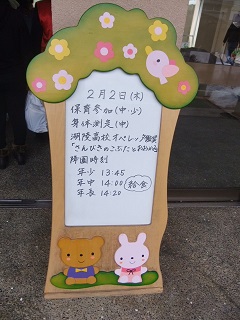 2月2日(木)
保育参加(中・少)
身体測定(中)
湖陵高校オペレッタ鑑賞
「さんびきのこぶたとおおかみ」
降園時刻
年少 13:45
年中 14:00 給食
年長 14:20